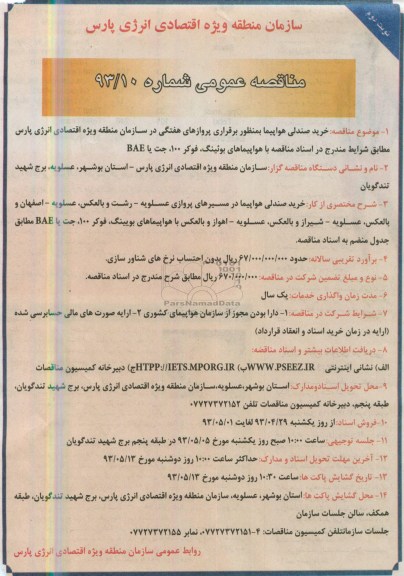 نوبت دوم
سازمان منطقه ویژه اقتصادی انرژی پارس
مناقصه عمومی شماره ۹۳/۱۰
۱- موضوع مناقصه: خرید صندلی هواپیما بمنظور برقراری پروازهای هفتگی در سازمان منطقه ویژه اقتصادی انرژی پارس
مطابق شرایط مندرج در اسناد مناقصه با هواپیماهای بوئینگ، فوکر ۱۰۰، جت یا BAE
۲- نام و نشانی دستگاه مناقصه گزار: سازمان منطقه ویژه اقتصادی انرژی پارس - استان بوشهر، عسلویه، برج شهید
تندگویان
۳- شرح مختصری از کار: خرید صندلی هواپیما در مسیرهای پروازی عسلویه - رشت و بالعکس، عسلویه - اصفهان و
بالعکس، عسلویه - شیراز و بالعکس، عسلویه - اهواز و بالعکس با هواپیماهای بویینگ، فوکر ۱۰۰، جت یا BAE مطابق
جدول منضم به اسناد مناقصه.
۴- برآورد تقریبی سالانه: حدود ۶۷/۰۰۰/۰۰۰/۰۰۰ ریال بدون احتساب نرخ های شناور سازی.
۵- نوع و مبلغ تضمین شرکت در مناقصه: ۶۷۰/۰۰۰/۰۰۰ ریال مطابق شرح مندرج در اسناد مناقصه.
۶- مدت زمان واگذاری خدمات: یک سال
ParsNamadData
۷- شرایط شرکت در مناقصه: ۱- دارا بودن مجوز از سازمان هواپیمای کشوری ۲- ارایه صورت های مالی حسابرسی شده
(ارایه در زمان خرید اسناد و انعقاد قرارداد)
۸- دریافت اطلاعات بیشتر و اسناد مناقصه:
الف) نشانی اینترنتی WWW.PSEEZ.IR ب) HTPP://IETS.MPORG.IR ج) دبیرخانه کمیسیون مناقصات
۹- محل تحویل اسنادومدارک: استان بوشهر، عسلویه، سازمان منطقه ویژه اقتصادی انرژی پارس، برج شهید تندگویان،
طبقه پنجم، دبیرخانه کمیسیون مناقصات تلفن ۰۷۷۲۷۳۷۲۱۵۲
۱۰- فروش اسناد: از روز یکشنبه ۹۳/۰۴/۲۹ لغایت ۹۳/۰۵/۰۱
۱۱- جلسه توجیهی: ساعت ۱۰:۰۰ صبح روز یکشنبه مورخ ۹۳/۰۵/۰۵ در طبقه پنجم برج شهید تندگویان
۱۲- آخرین مهلت تحویل اسناد و مدارک: حداکثر ساعت ۱۰:۰۰ روز دوشنبه مورخ ۹۳/۰۵/۱۳
۱۳- تاریخ گشایش پاکت ها: ساعت ۱۰:۳۰ روز دوشنبه مورخ ۹۳/۰۵/۱۳
۱۴- محل گشایش پاکت ها: استان بوشهر، عسلویه، سازمان منطقه ویژه اقتصادی انرژی پارس، برج شهید تندگویان، طبقه
همکف، سالن جلسات سازمان
جلسات سازمانتلفن کمیسیون مناقصات: ۴-۰۷۷۲۷۳۷۲۱۵۱، نمابر ۰۷۷۲۷۳۷۲۱۵۵
روابط عمومی سازمان منطقه ویژه اقتصادی انرژی پارس